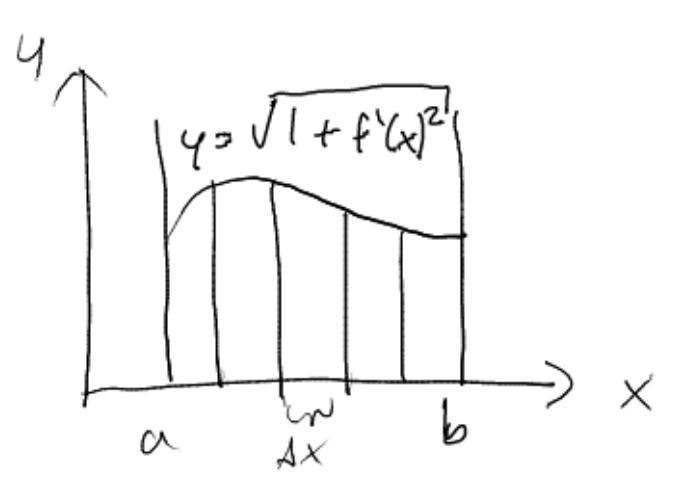 y
y = √1 + f'(x)²
x
a
Δx
b